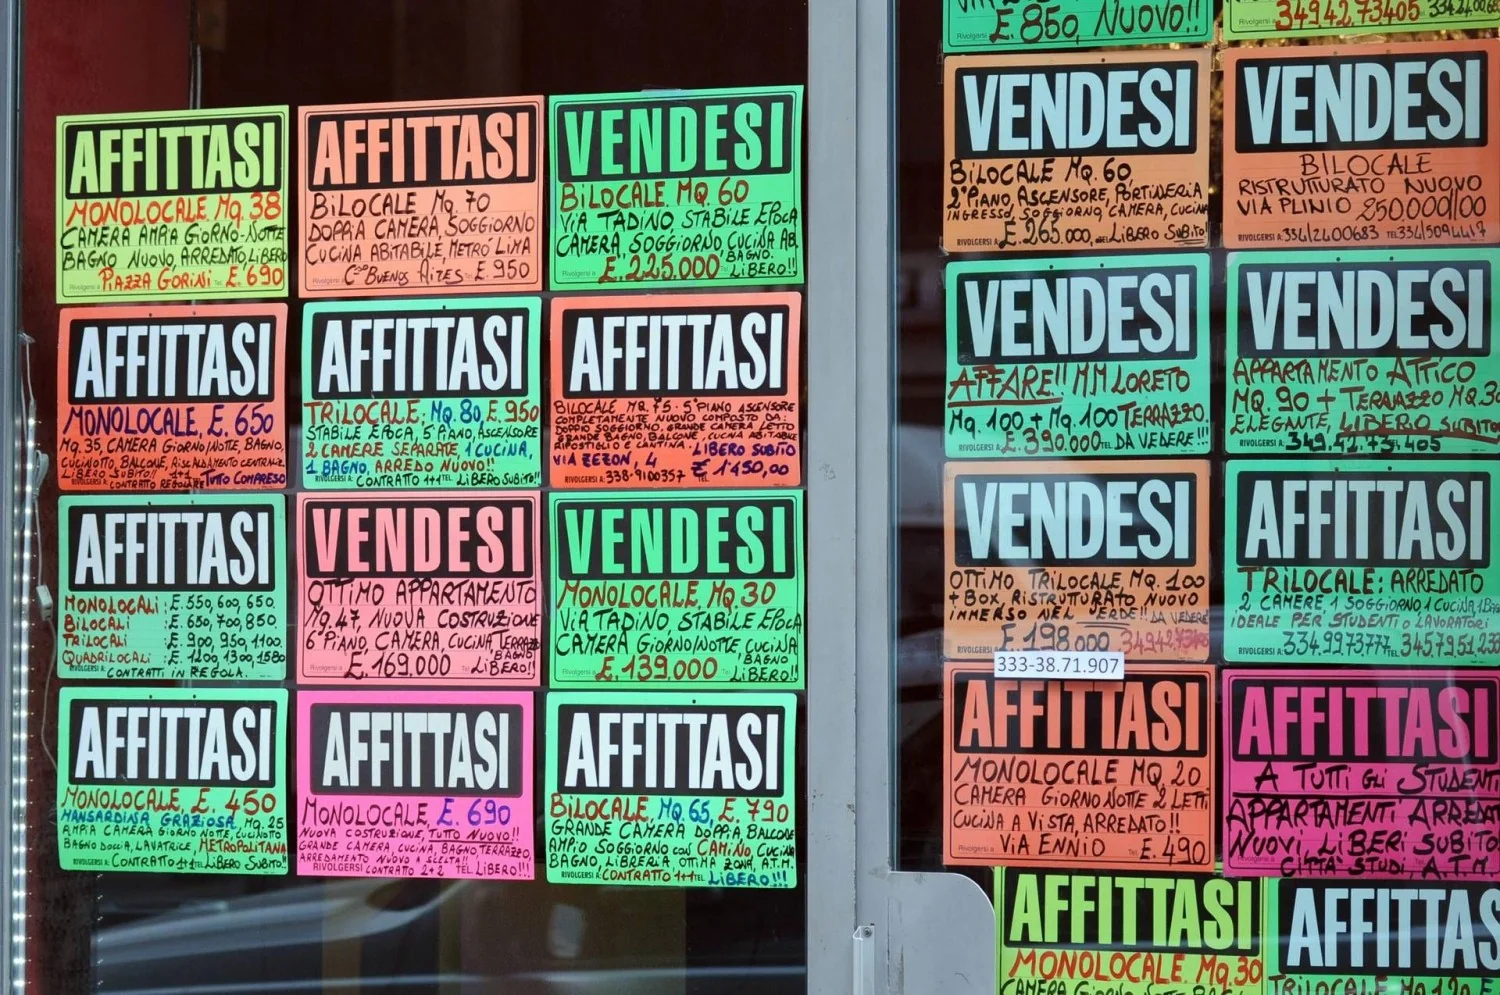 AFFITTASI
MONOLOCALE, Mq. 38
CAMERA AMPIA GIORNO-NOTTE
BAGNO NUOVO, ARREDATO, LIBERO
PIAZZA GORINI E. 690
AFFITTASI
BILOCALE Mq. 70
DOPPIA CAMERA, SOGGIORNO
CUCINA ABITABILE, METRÒ LIMA
C.so BUENOS AIRES E. 950
VENDESI
BILOCALE MQ. 60
VIA TADINO, STABILE EPOCA
CAMERA, SOGGIORNO, CUCINA AB.
BAGNO.
E. 225.000 LIBERO!!
AFFITTASI
MONOLOCALE, E. 650
Mq. 35, CAMERA GIORNO/NOTTE, BAGNO,
CUCINOTTO, BALCONE, RISCALDAMENTO CENTRALE
LIBERO SUBITO!! 1+1 TUTTO COMPRESO
CONTRATTO REGOLARE
AFFITTASI
TRILOCALE, MQ. 80, E. 950
STABILE EPOCA, 5° PIANO, ASCENSORE
2 CAMERE SEPARATE, 1 CUCINA,
1 BAGNO, ARREDO NUOVO!!
RIVOLGERSI A: CONTRATTO 1+1 TEL. LIBERO SUBITO!!
AFFITTASI
BILOCALE MQ. 75 - 5° PIANO ASCENSORE
COMPLETAMENTE NUOVO COMPOSTO DA:
DOPPIO SOGGIORNO, GRANDE CAMERA LETTO
GRANDE BAGNO, BALCONE, CUCINA ABITABILE
RIPOSTIGLIO E CANTINA. LIBERO SUBITO
VIA ZEZON, 4 E 1150,00
RIVOLGERSI A: 338-9100357 TEL.
AFFITTASI
MONOLOCALI : E. 550, 600, 650.
BILOCALI : E. 650, 700, 850.
TRILOCALI : E. 900, 950, 1100.
QUADRILOCALI : E. 1200, 1300, 1580
RIVOLGERSI A: CONTRATTI IN REGOLA.
VENDESI
OTTIMO APPARTAMENTO
Mq. 47, NUOVA COSTRUZIONE
6° PIANO, CAMERA, CUCINA, TERRAZZO
BAGNO
E. 169.000 LIBERO!!
VENDESI
MONOLOCALE, MQ 30
VIA TADINO, STABILE EPOCA
CAMERA GIORNO/NOTTE, CUCINA
BAGNO
E. 139.000 LIBERO!!
AFFITTASI
MONOLOCALE, E. 450
MANSARDINA GRAZIOSA, MQ. 25
AMPIA CAMERA GIORNO NOTTE, CUCINOTTO
BAGNO DOCCIA, LAVATRICE, METROPOLITANA
RIVOLGERSI A: CONTRATTO 1+1 LIBERO SUBITO!!
AFFITTASI
MONOLOCALE, E. 690
NUOVA COSTRUZIONE, TUTTO NUOVO!!
GRANDE CAMERA, CUCINA, BAGNO, TERRAZZO,
ARREDAMENTO NUOVO A SCELTA!!
RIVOLGERSI CONTRATTO 2+2 TEL. LIBERO!!!
AFFITTASI
BILOCALE, MQ 65, E. 790
GRANDE CAMERA DOPPIA, BALCONE
AMPIO SOGGIORNO con CAMINO, CUCINA
BAGNO, LIBRERIA, OTTIMA ZONA, A.T.M.
RIVOLGERSI A: CONTRATTO 1+1 TEL. LIBERO!!!
E. 850, NUOVO!!
Rivolgersi a
3494273405
VENDESI
BILOCALE MQ. 60,
2° PIANO, ASCENSORE, PORTINERIA
INGRESSO, SOGGIORNO, CAMERA, CUCINA
RIVOLGERSI A: E. 265.000, LIBERO SUBITO!
VENDESI
BILOCALE
RISTRUTTURATO NUOVO
VIA PLINIO 250.000,00
RIVOLGERSI A: 334/2400683 TEL.
VENDESI
AFFARE!! MM LORETO
MQ. 100 + MQ. 100 TERRAZZO.
RIVOLGERSI A: E. 390.000 TEL. DA VEDERE!!!
VENDESI
APPARTAMENTO ATTICO
MQ 90 + TERRAZZO MQ. 30
ELEGANTE, LIBERO SUBITO
RIVOLGERSI A: 349.42.73.405
VENDESI
OTTIMO TRILOCALE, MQ. 100
+ BOX, RISTRUTTURATO NUOVO
IMMERSO NEL VERDE!! DA VEDERE
E. 198.000 3494273405
AFFITTASI
TRILOCALE: ARREDATO
2 CAMERE, 1 SOGGIORNO, 1 CUCINA, 1 BAGNO
IDEALE PER STUDENTI o LAVORATORI
334.9973777
333-38.71.907
AFFITTASI
MONOLOCALE MQ. 20
CAMERA GIORNO NOTTE 2 LETTI
CUCINA A VISTA, ARREDATO!!
VIA ENNIO E. 490
AFFITTASI
A TUTTI GLI STUDENTI
APPARTAMENTI ARREDATI
NUOVI, LIBERI SUBITO
CITTÀ STUDI, A.T.M.
AFFITTASI
MONOLOCALE, Mq. 30
CAMERA GIORNO NOTTE
AFFITTAS
TRILOCALE MQ. 120 E